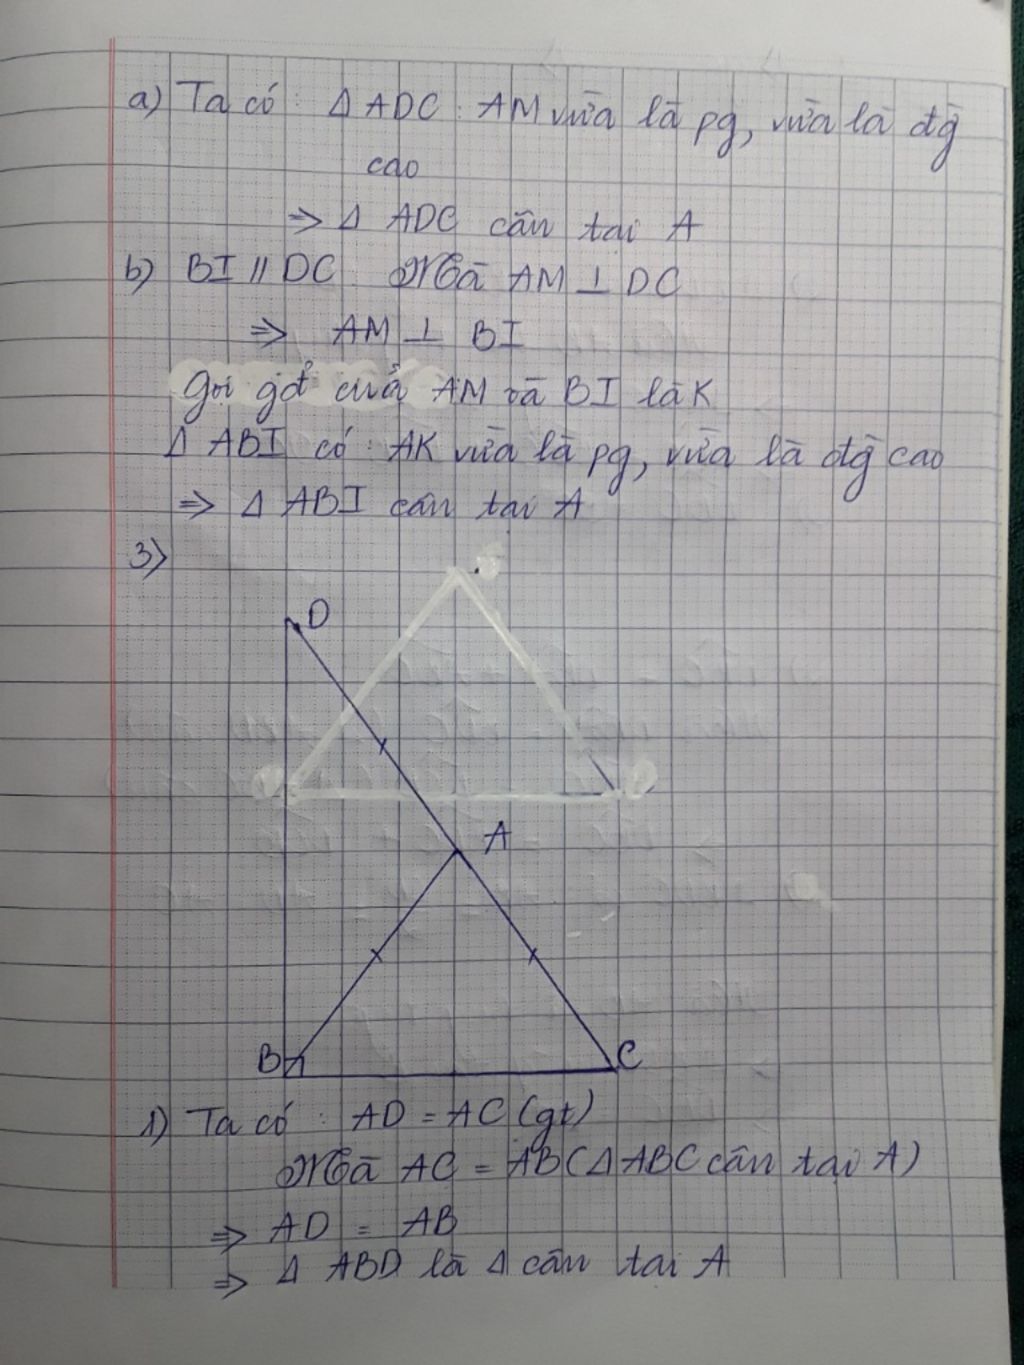 a) Ta có : Δ ADC : AM vừa là pg, vừa là đg
cao
⇒ Δ ADC cân tại A
b) BI // DC. Mà AM ⊥ DC
⇒ AM ⊥ BI
Gọi gđ của AM và BI là K
Δ ABI có : AK vừa là pg, vừa là đg cao
⇒ Δ ABI cân tại A
3)
D
A
B
C
1) Ta có : AD = AC (gt)
Mà AC = AB (Δ ABC cân tại A)
⇒ AD = AB
⇒ Δ ABD là Δ cân tại A